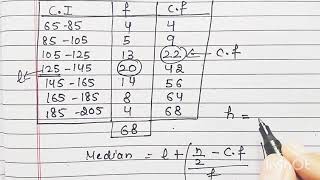 C.I f c.f
65-85 4 4
85-105 5 9
105-125 13 22 ← C.f
l← 125-145 20 42
145-165 14 56
165-185 8 64
185-205 4 68
68
h =
Median = l + ( n/2 - C.f / f